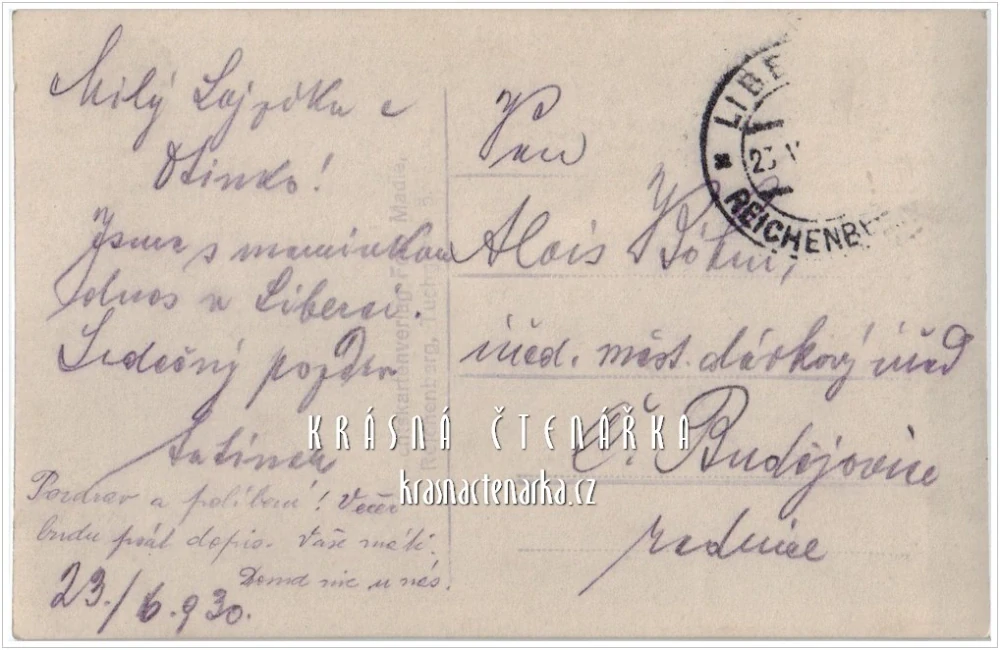 Milý Lojzíku a
Otínko!
Jsme s maminkou
dnes v Liberci.
Srdečný pozdrav
tatínek
Pozdrav a políbení! Večer
budu psát dopis. Vaše máti.
Doma nic u nás.
23./6.930.
Pan
Alois Böhm,
úřed. měst. dávkový úřad
Č. Budějovice
radnice
LIBE
23
REICHENBE
KRÁSNÁ ČTENÁŘKA
krasnactenarka.cz